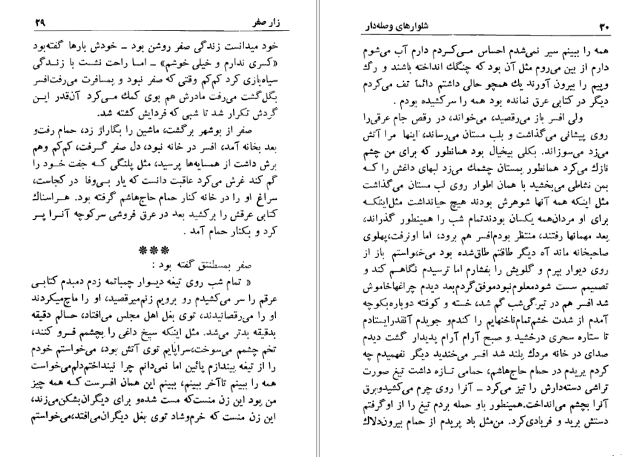 زار صفر ۲۹
خود میدانست زندگی صفر روشن بود ـ خودش بارها گفته‌بود
«کسری ندارم و خیلی خوشم» ـ اما راحت نشست با زندگی
سیاه‌بازی کرد کم‌کم وقتی که صفر نبود و بمسافرت میرفت‌افسر
بگل‌گشت می‌رفت مادرش هم بوی کمك می‌کرد آن‌قدر این
گردش تکرار شد تا شبی که فردایش کشته شد.
صفر از بوشهر برگشت، ماشین را بگاراژ زد، حمام رفت‌و
بعد بخانه آمد، افسر در خانه نبود، دل صفر گرفت، کم‌کم وهم
برش داشت از همسایه‌ها پرسید، مثل پلنگی که جفت خود را
گم کند غرش می‌کرد عاقبت دانست که یار بی‌وفا در کجاست،
سراغ او را در خانه کنار حمام حاج‌هاشم گرفته بود. هراسناك
کتابی عرقش را برکشید بعد در عرق فروشی سرکوچه آنرا پر
کرد و بکنار حمام آمد.
***
صفر بمستنطق گفته بود:
« تمام شب روی تیغه دیوار چمباتمه زدم دمبدم کتابی
عرقم را سر می‌کشیدم رو برویم زنم‌میرقصید، او را ماچ‌میکردند
او را می‌رقصانیدند، توی بغل اهل مجلس می‌افتاد، حالم دقیقه
بدقیقه بدتر می‌شد. مثل اینکه سیخ داغی را بچشمم فرو کنند،
تخم چشمم می‌سوخت، سراپایم توی آتش بود، می‌خواستم خودم
را از تیغه بیندازم پائین اما نمی‌دانم چرا نینداختم‌دلم‌می‌خواست
همه را ببینم تاآخر ببینم، ببینم این همان افسرست که همه چیز
من بود این زن منست‌که مست شده‌و برای دیگران‌بشکن‌می‌زند،
این زن منست که خرم‌وشاد توی بغل دیگران‌می‌افتد، می‌خواستم
۳۰ شلوارهای وصله‌دار
همه را ببینم سیر نمی‌شدم احساس می‌کردم دارم آب می‌شوم
دارم از بین می‌روم مثل آن بود که چنگك انداخته باشند و رگ
و پیم را بیرون آورند یك همچو حالی داشتم دائماً تف می‌کردم
دیگر در کتابی عرق نمانده بود همه را سرکشیده بودم.
ولی افسر باز می‌رقصید، می‌خواند، در رقص جام عرقی‌را
روی پیشانی می‌گذاشت و بلب مستان می‌رساند، اینها مرا آتش
می‌زد می‌سوزاند. بکلی بیخیال بود همانطور که برای من چشم
نازك می‌کرد همانطور بمستان چشمك می‌زد لبهای داغش را که
بمن نشاطی می‌بخشید با همان اطوار روی لب مستان می‌گذاشت
مثل اینکه همه آنها شوهرش بودند هیچ حیانداشت مثل‌اینکه
برای او مردان‌همه یکسان بودندتمام شب را همینطور گذراند،
بعد مهمانها رفتند، منتظر بودم‌افسر هم برود، اما اونرفت،پهلوی
صاحبخانه ماند آه دیگر طاقتم طاق‌شده بود می‌خواستم باز از
روی دیوار بپرم و گلویش را بفشارم اما ترسیدم نگاهم کند و
تصمیمم سست شودمعلوم‌نبودموفق‌گردم‌بعد دیدم چراغهاخاموش
شد افسر هم در تیرگی‌شب گم شد، خسته و کوفته دوباره‌بکوچه
آمدم از شدت خشم‌تمام‌ناخنهایم را کندم‌و جویدم آنقدرایستادم
تا ستاره سحری درخشید و صبح آرام آرام پدیدار گشت دیدم
صدای در خانه مردك بلند شد افسر می‌خندید دیگر نفهمیدم چه
کردم پریدم در حمام حاج‌هاشم، حمامی تازه داشت تیغ صورت
تراشی دسته‌دارش را تیز می‌کرد ـ آنرا روی چرم می‌کشیدوبرق
آنرا بچشم می‌انداخت.همینطور باو حمله بردم تیغ را از اوگرفتم
دستش برید و فریادی‌کرد. من‌مثل باد پریدم از حمام بیرون‌دلاك